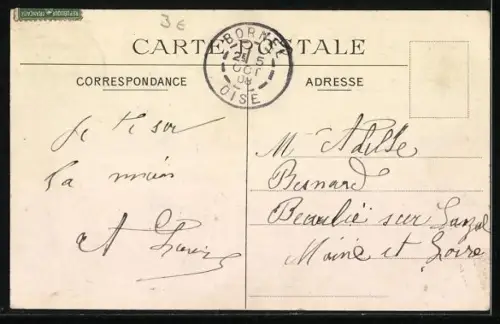 3 €
CARTE POSTALE
BORNEL
25
OCT
08
OISE
CORRESPONDANCE
ADRESSE
Je te sor
la mien
A
M Adille
Besnard
Beaulie sur Layol
Maine et Loire